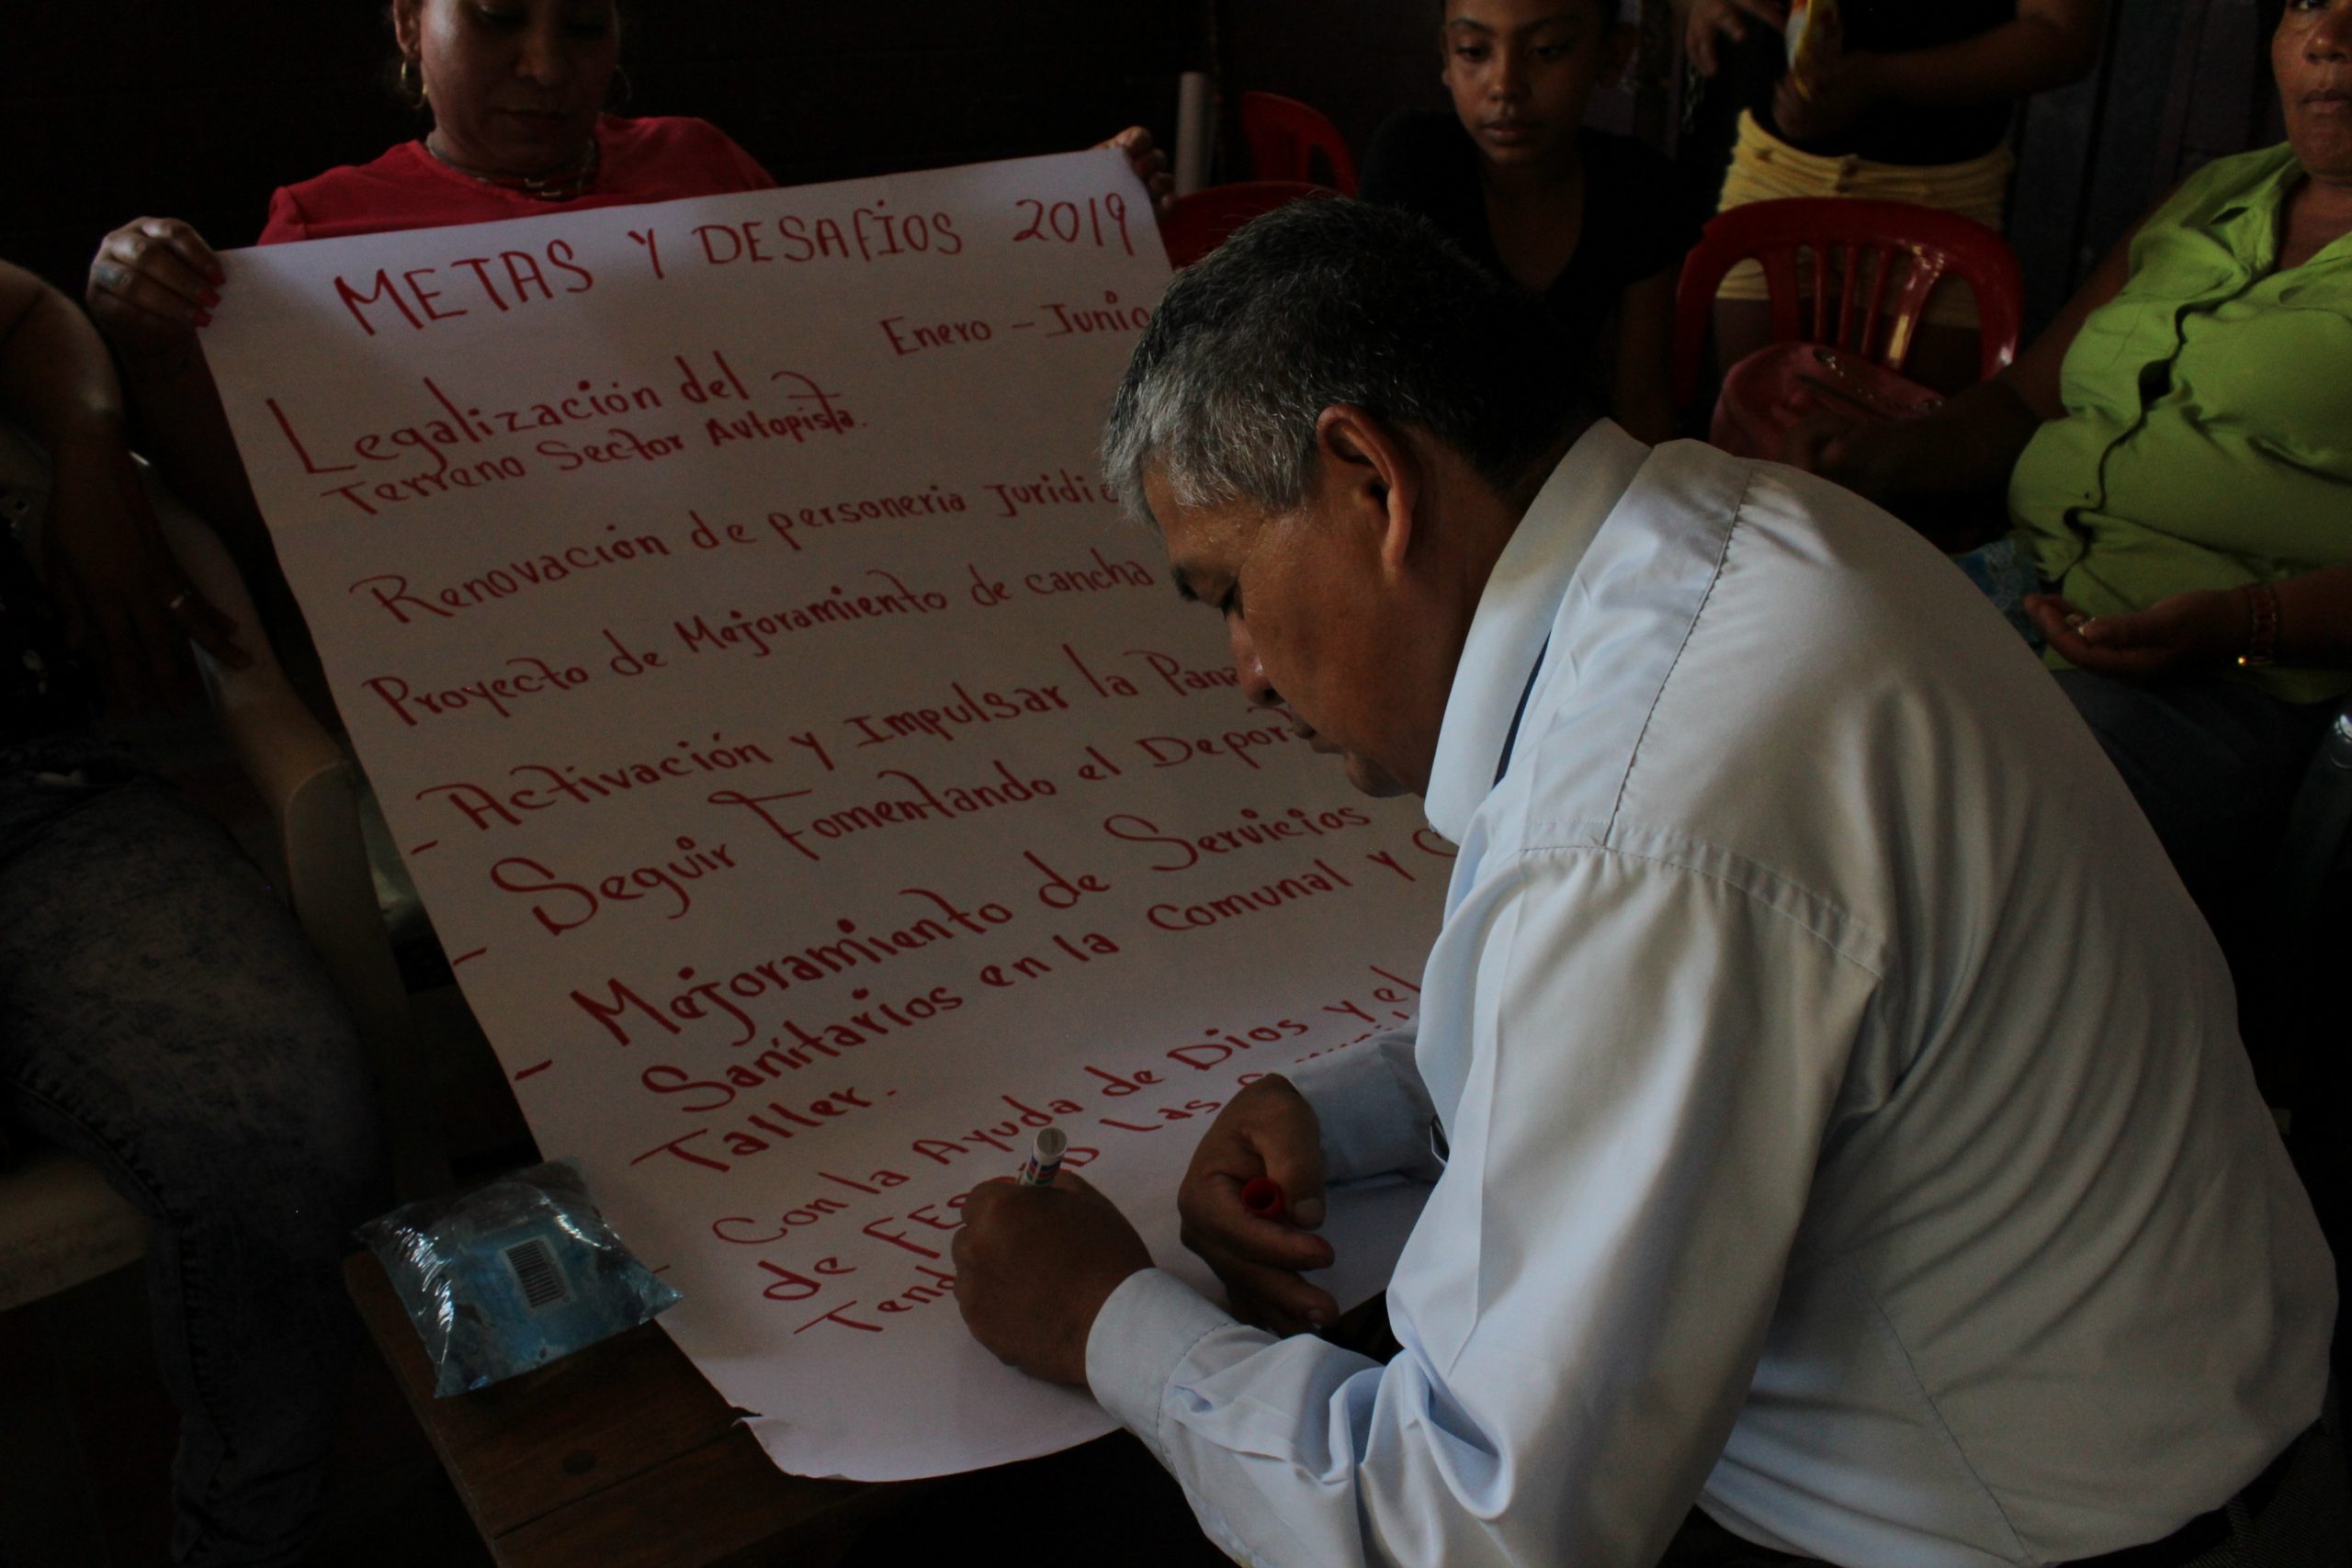 METAS Y DESAFÍOS 2019
Enero - Junio
Legalización del
Terreno Sector Autopista.
Renovación de personeria Juridi
Proyecto de Mejoramiento de cancha
- Activación y Impulsar la Pana
- Seguir Fomentando el Deport
- Mejoramiento de Servicios
Sanítarios en la Comunal y
Taller.
- Con la Ayuda de Dios y el
de Las
Tend